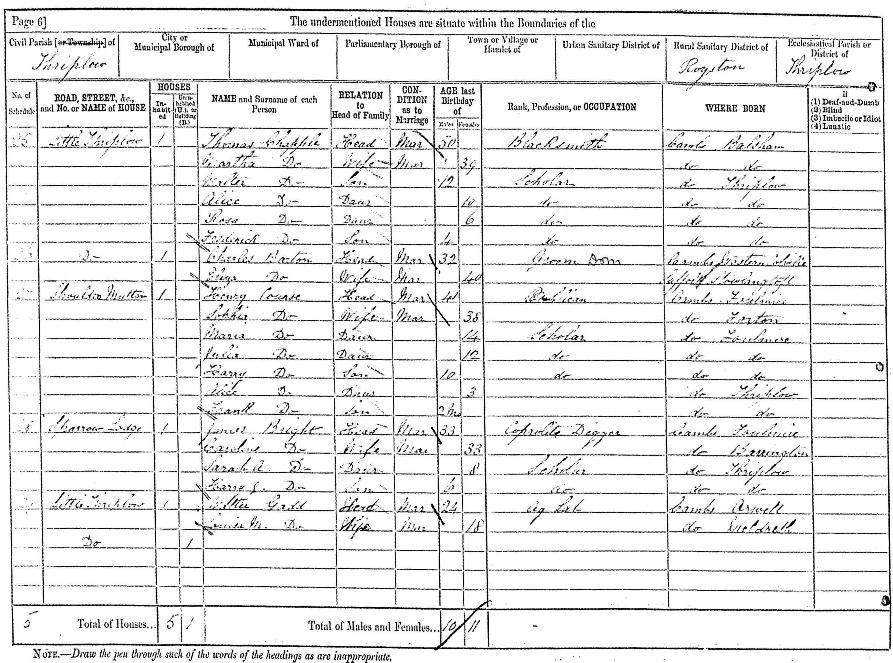 Page 6] The undermentioned Houses are situate within the Boundaries of the
Civil Parish [or Township] of City or Municipal Borough of Municipal Ward of Parliamentary Borough of Town or Village or Hamlet of Urban Sanitary District of Rural Sanitary District of Ecclesiastical Parish or District of
Thriplow Royston Thriplow
No. of Schedule ROAD, STREET, &c., and No. or NAME of HOUSE HOUSES Inhabited Uninhabited (U.), or Building (B.) NAME and Surname of each Person RELATION to Head of Family CONDITION as to Marriage AGE last Birthday of Males Females Rank, Profession, or OCCUPATION WHERE BORN If (1) Deaf-and-Dumb (2) Blind (3) Imbecile or Idiot (4) Lunatic
25 Little Thriplow 1 Thomas Chapple Head Mar 50 Blacksmith Cambs Balsham
Martha Do Wife Mar 39 do do
Walter Do Son 12 Scholar do Thriplow
Alice Do Daur 10 do do do
Rosa Do Daur 6 do do do
Fredrick Do Son 4 do do do
Do 1 Charles Barton Head Mar 32 Groom Dom Cambs
Eliza Do Wife Mar 40 Suffolk
Shoulder Mutton 1 Henry Course Head Mar 41 Publican Cambs Foulmire
Sophia Do Wife Mar 38 do Foxton
Maria Do Daur 14 Scholar do Foulmire
Julia Do Daur 12 do do do
Harry Do Son 10 do do do
Alice Do Daur 3 do Thriplow
Frank Do Son 2m do do
Sparrow Lodge 1 James Bright Head Mar 33 Coprolite Digger Cambs Foulmire
Caroline Do Wife Mar 33 do Barrington
Sarah A. Do Daur 8 Scholar do Thriplow
Harry J. Do Son do do do
Little Thriplow 1 Walter Gadd Head Mar 24 Ag Lab Cambs Arwell
Louisa M. Do Wife Mar 18 do Meldreth
Do 1
5 Total of Houses... 5 1 Total of Males and Females... 10 11
NOTE.—Draw the pen through such of the words of the headings as are inappropriate.